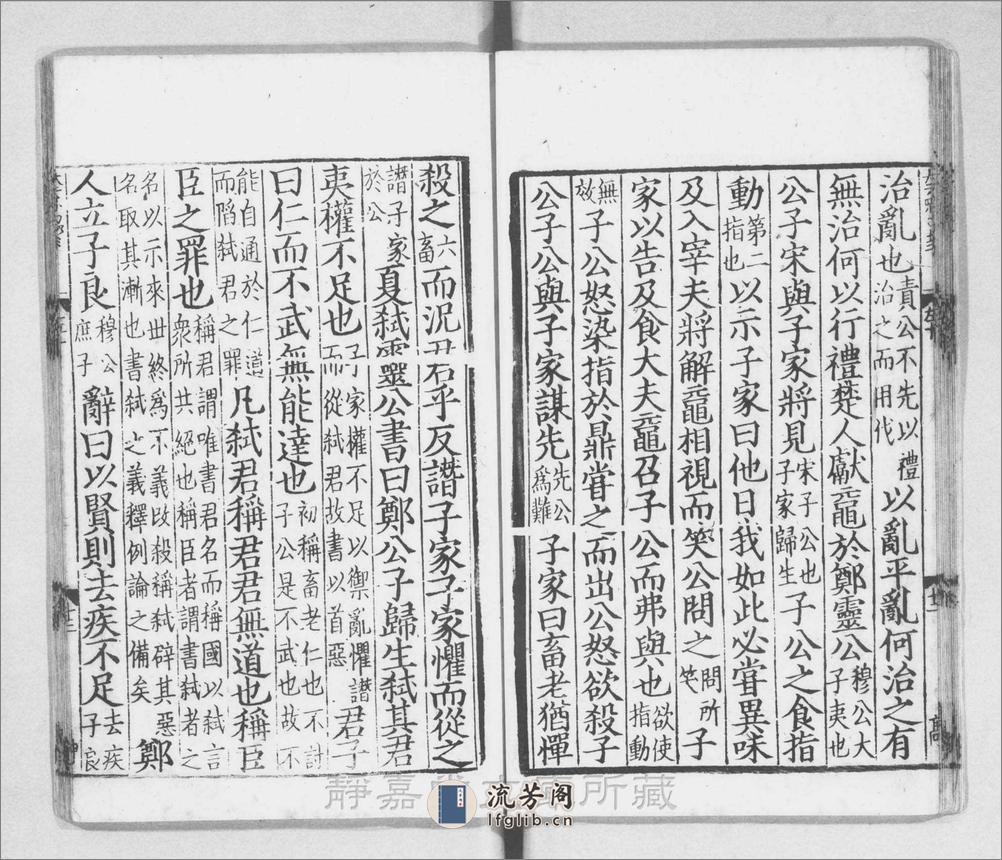 治亂也責公不先以禮治之而用伐以亂平亂何治之有
無治何以行禮楚人獻黿於鄭靈公穆公大子夷也
公子宋與子家將見宋子公也子家歸生子公之食指
動第二指也以示子家曰他日我如此必嘗異味
及入宰夫將解黿相視而笑公問之問所笑子
家以告及食大夫黿召子公而弗與也欲使指動
無故子公怒染指於鼎嘗之而出公怒欲殺子
公子公與子家謀先先公為難子家曰畜老猶憚
殺之六畜而況君乎反譖子家子家懼而從之
譖子家於公夏弒靈公書曰鄭公子歸生弒其君
夷權不足也子家權不足以禦亂懼譖而從弒君故書以首惡君子
曰仁而不武無能達也初稱畜老仁也不討子公是不武也故不
能自通於仁道而陷弒君之罪凡弒君稱君君無道也稱臣
臣之罪也稱君謂唯書君名而稱國以弒言眾所共絕也稱臣者謂書弒者之
名以示來世終為不義改殺稱弒辟其惡名取其漸也書弒之義釋例論之備矣鄭
人立子良穆公庶子辭曰以賢則去疾不足去疾子良
靜嘉堂文庫所藏
流芳阁
lfglib.cn